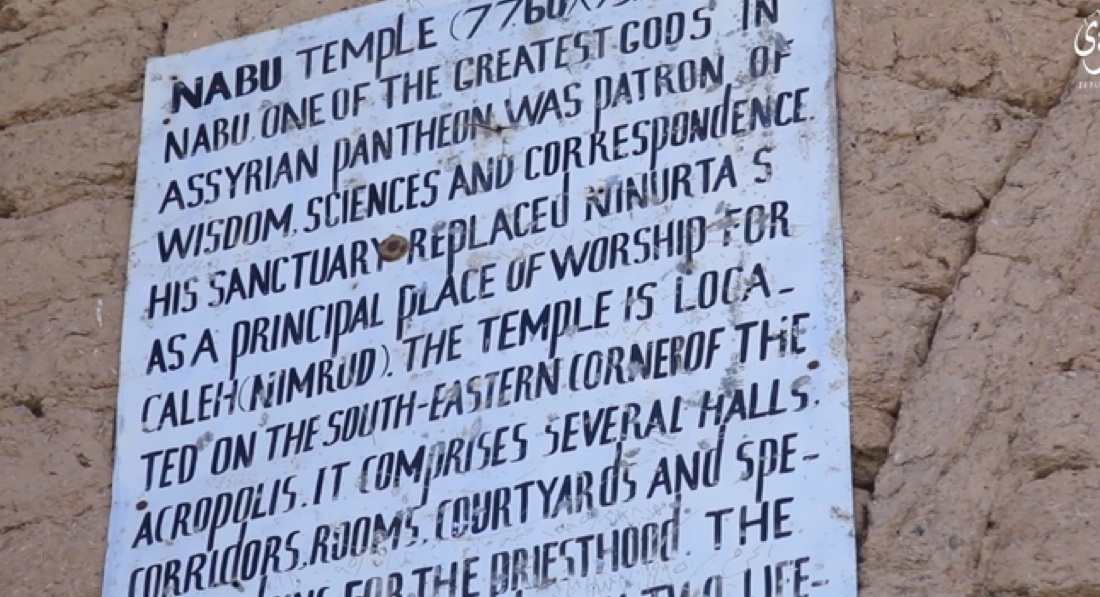 NABU TEMPLE
NABU, ONE OF THE GREATEST GODS IN
ASSYRIAN PANTHEON WAS PATRON OF
WISDOM, SCIENCES AND CORRESPONDENCE.
HIS SANCTUARY REPLACED NINURTA S
AS A PRINCIPAL PLACE OF WORSHIP FOR
CALEH (NIMRUD). THE TEMPLE IS LOCA-
TED ON THE SOUTH-EASTERN CORNER OF THE
ACROPOLIS. IT COMPRISES SEVERAL HALLS,
CORRIDORS, ROOMS, COURTYARDS AND SPE-
FOR THE PRIESTHOOD. THE
TWO LIFE-